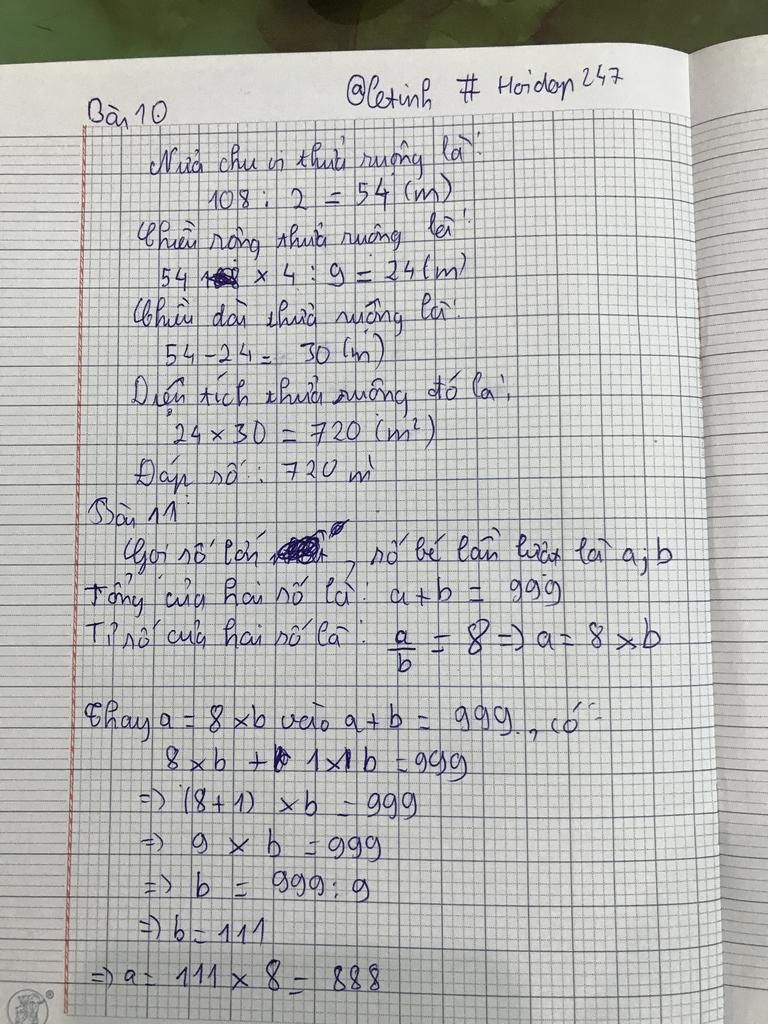 @letinh # Hoidap247
Bài 10
Nửa chu vi thửa ruộng là:
108 : 2 = 54 (m)
Chiều rộng thửa ruộng là:
54 × 4 : 9 = 24 (m)
Chiều dài thửa ruộng là:
54 - 24 = 30 (m)
Diện tích thửa ruộng đó là:
24 × 30 = 720 (m²)
Đáp số: 720 m
Bài 11:
Gọi số lớn, số bé lần lượt là a; b
Tổng của hai số là: a + b = 999
Tỉ số của hai số là: a/b = 8 => a = 8 × b
Thay a = 8 × b vào a + b = 999, có:
8 × b + 1 × b = 999
=> (8 + 1) × b = 999
=> 9 × b = 999
=> b = 999 : 9
=> b = 111
=> a = 111 × 8 = 888